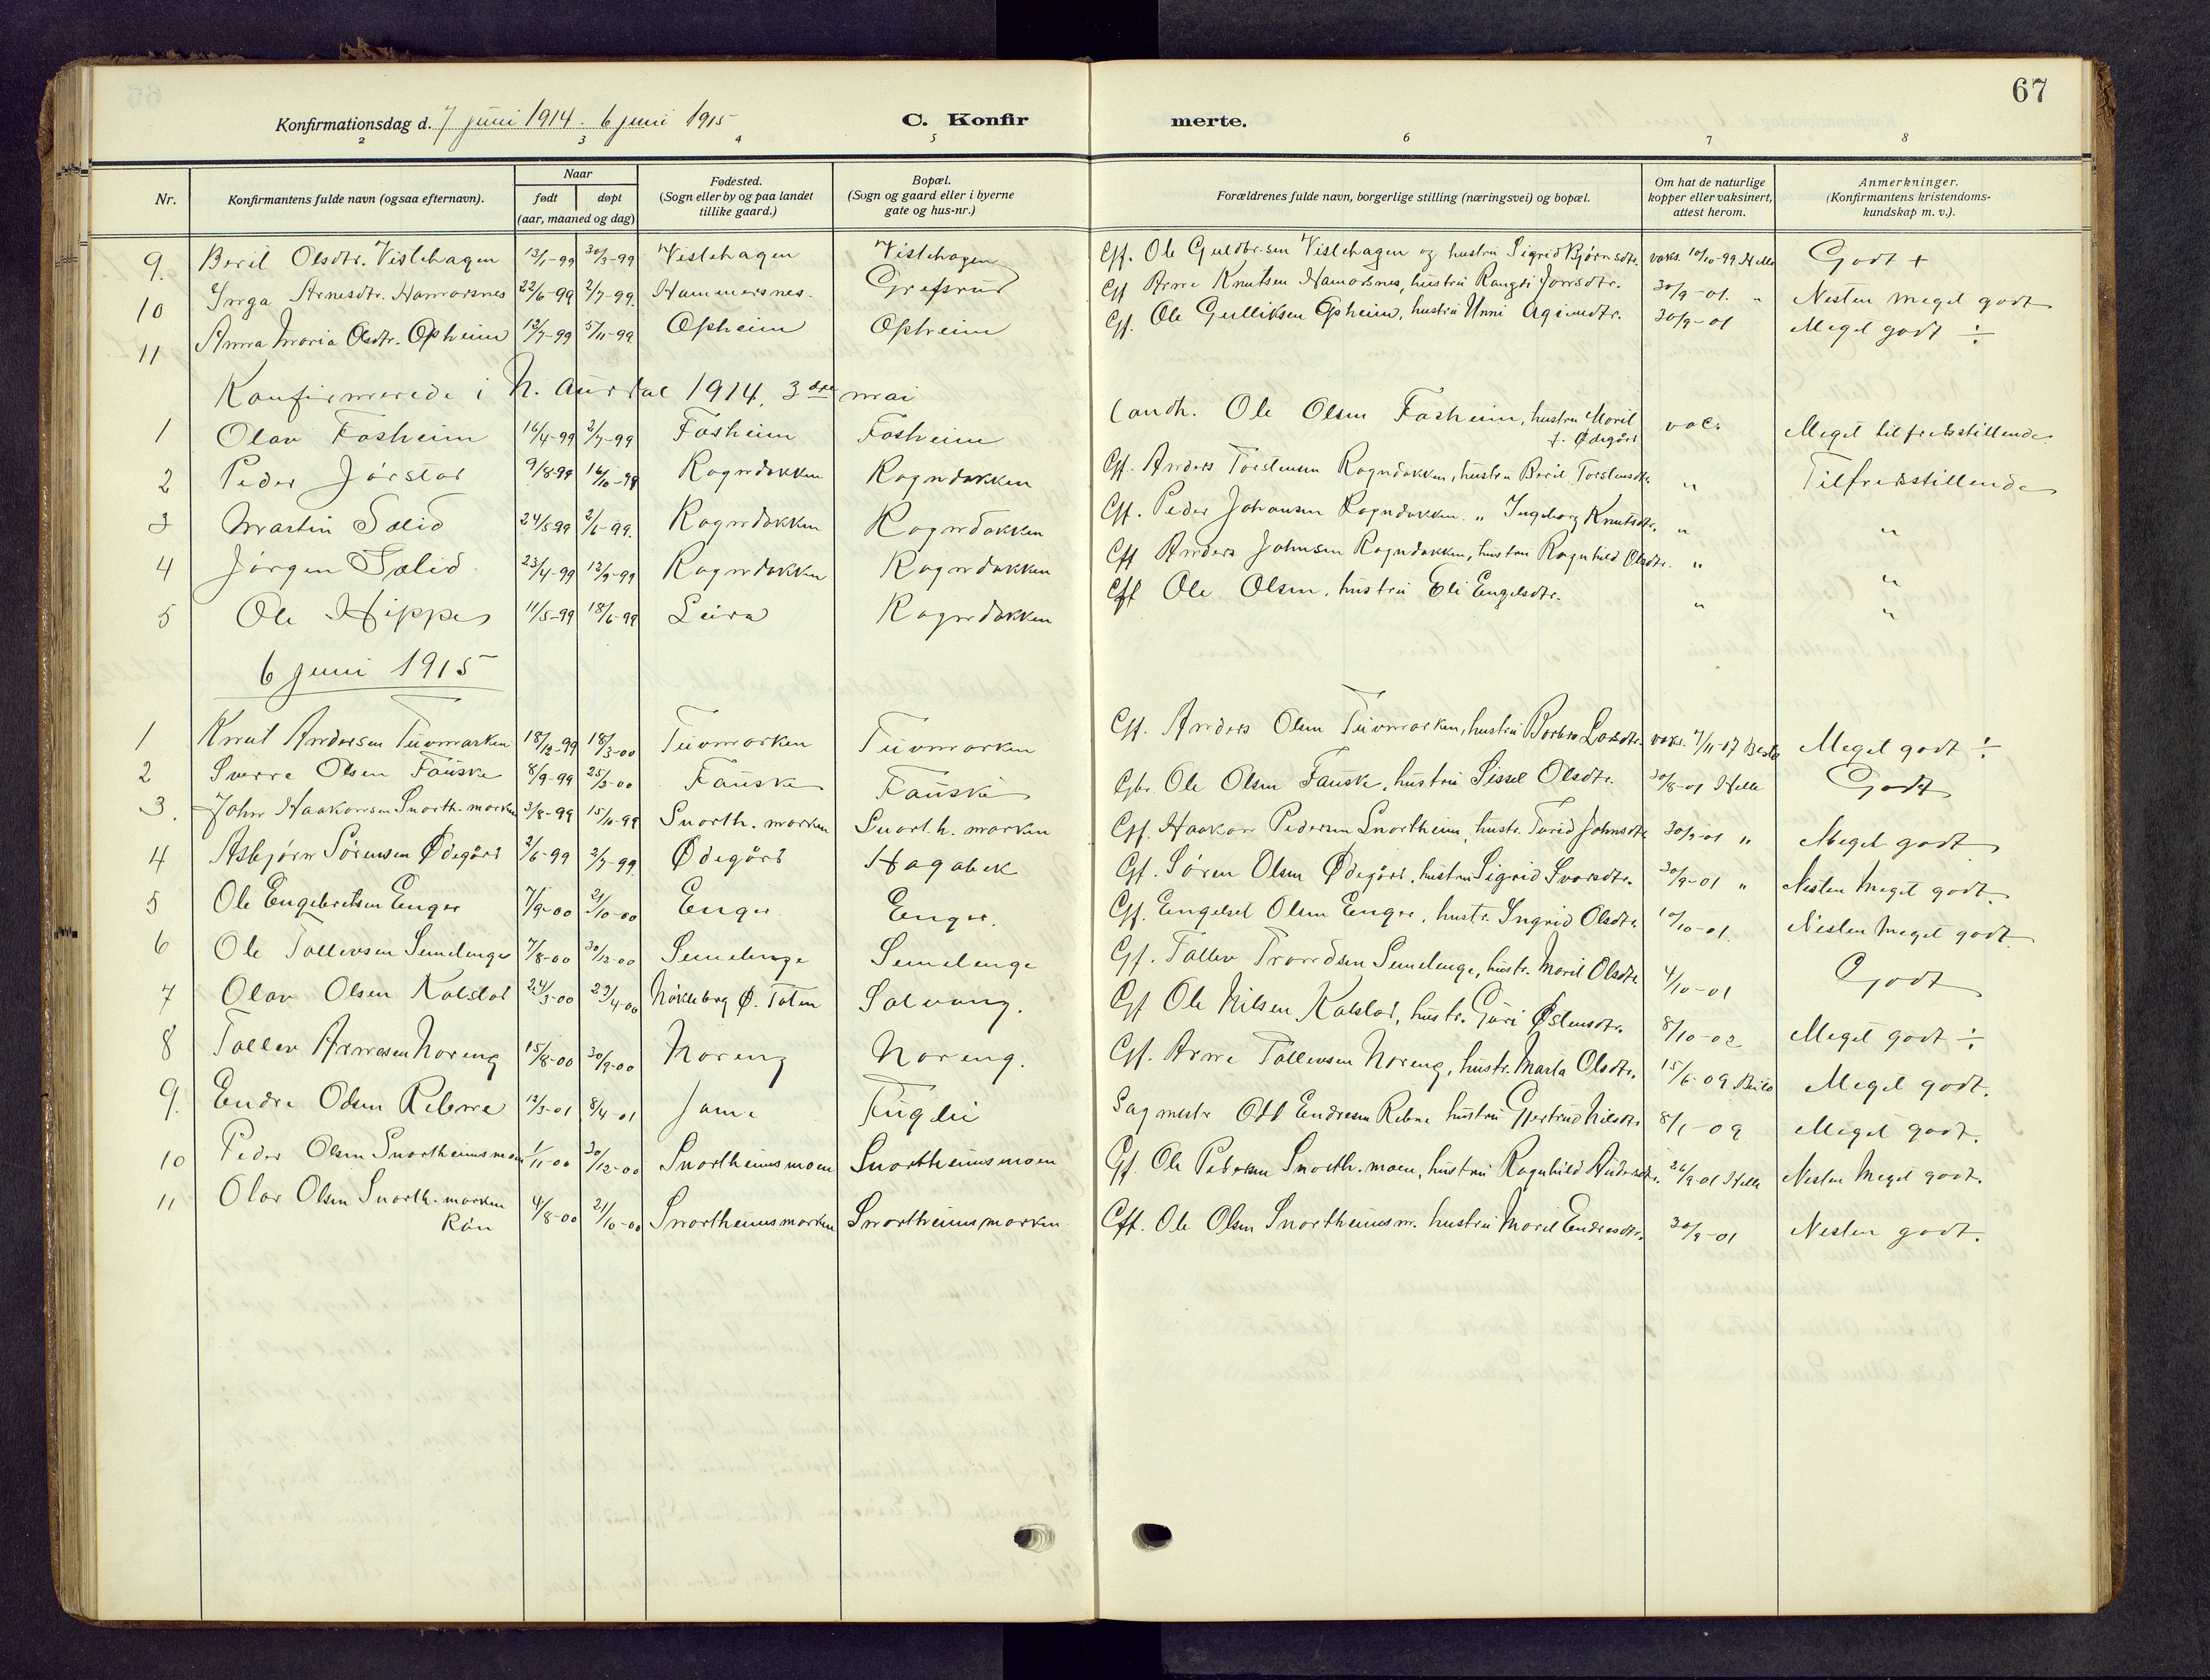 67
Konfirmationsdag d. 7 juni 1914. 6 juni 1915
C. Konfirmerte.
2 3 4 5 6 7 8
Nr.
Konfirmantens fulde navn (ogsaa efternavn).
Naar
født døpt
(aar, maaned og dag)
Fødested.
(Sogn eller by og paa landet
tillike gaard.)
Bopæl.
(Sogn og gaard eller i byerne
gate og hus-nr.)
Forældrenes fulde navn, borgerlige stilling (næringsvei) og bopæl.
Om hat de naturlige
kopper eller vaksinert,
attest herom.
Anmerkninger.
(Konfirmantens kristendoms-
kundskap m. v.).
9. Berit Olsdtr. Vistehagen 13/1-99 30/3-99 Vistehagen Vistehagen Gff. Ole Guldbr.sen Vislehagen og hustru Sigrid Bjørnsdtr. vaks. 10/10-99 Helle Godt +
10 Inga Arnesdtr. Hamarsnes 22/6-99 2/7-99. Hammersnes. Grefsrud Gf Arne Knutsen Hamarsnes, hustru Rangdi Jonsdtr. 30/9-01. " Nesten meget godt
11 Anna Maria Olsdtr. Opheim 12/7-99 5/11-99 Opheim Opheim Gf. Ole Gulliksen Opheim, hustru Unni 30/9-01 Meget godt ÷
Konfirmerede i N. Aurdal 1914, 3die mai
1 Olav Fosheim 16/4-99 2/7-99 Fosheim Fosheim Landh. Ole Olsen Fosheim, hustru Marit
f. Ødegård vac. Meget tilfredsstillende
2 Peder Jørstad 9/8-99 16/10-99 Rogndokken Rogndokken Gff. Anders Torstensen Rogndokken, hustru Berit Torstensdtr. " Tilfredsstillende
3 Martin Sælid 24/5 99 2/6-99. Rogndokken Rogndokken Gff. Peder Johansen Rogndokken. " Ingeborg Knutsdtr. " "
4 Jørgen Sælid 23/4-99 12/9-99 Rogndokken Rogndokken Gff Anders Johnsen Rogndokken, hustru Ragnhild Olsdtr. " "
5 Ole Hippe 11/5-99 18/6-99 Leira Rogndokken Gff Ole Olsen, hustru Eli Engelsdtr. " "
6 juni 1915
1 Knut Andersen Tuvmarken 18/12-99 18/3-00 Tuvmarken Tuvmarken Gff. Anders Olsen Tuvmarken, hustru Barbro vaks. 7/11-07 Meget godt ÷
2 Sverre Olsen Fauske 8/9-99 25/3-00 Fauske Fauske Gbr. Ole Olsen Fauske, hustru Sissel Olsdtr. 30/8-01 Helle Godt
3. John Haakonsen Snorth.marken 3/8-99 15/10-99 Snorth.marken Snorth.marken Gff. Haakon Pedersen Snortheim, hustr. Turid Johnsdtr. 30/9-01 " Meget godt
4 Asbjørn Sørensen Ødegård 2/6-99 2/7-99. Ødegård Hagabek Gf. Søren Olsen Ødegård, hustru Sigrid 30/9-01 " Nesten meget godt.
5 Ole Engebretsen Enger 7/9-00 21/10-00 Enger Enger. Gff. Olsen Enger, hustr. Ingrid Olsdtr. 10/10-01. Nesten meget godt.
6 Ole Tollevsen Semelenge 7/8-00 30/12-00 Semelenge Semelenge Gf. Tollev Trondsen Semelenge, hustr. Marit Olsdtr. 4/10-01 Godt
7 Olav Olsen Kalstad 24/3-00 29/4-00 Nøkleberg Ø. Toten Solvang. Gf Ole Nilsen Kalstad, hustr. Guri Østensdtr. 8/10-02 Meget godt ÷
8 Tollev Arnesen Noreng 15/8-00 30/9-00 Noreng Noreng. Gff. Arne Tollevsen Noreng, hustr. Marta Olsdtr. 15/6-09 Meget godt.
9. Endre Odsen Rebne 12/3-01 8/4-01 Fuglei Sagmestr Odd Endresen Rebne hustru Gjertrud Nilsdtr 8/1-09 Meget godt.
10 Peder Olsen Snortheimsmoen 1/11-00 30/12-00 Snortheimsmoen Snortheimsmoen Gf. Ole Pedersen Snorth.moen, hustru Ragnhild Andersdtr. 26/9-01 Helle Nesten meget godt.
11 Olav Olsen Snorth.marken
Røn 4/8-00 21/10-00 Snortheimsmarken Snortheimsmarken Gff. Ole Olsen Snortheimsm. hustru Marit Endresdtr. 30/9-01 Nesten godt.